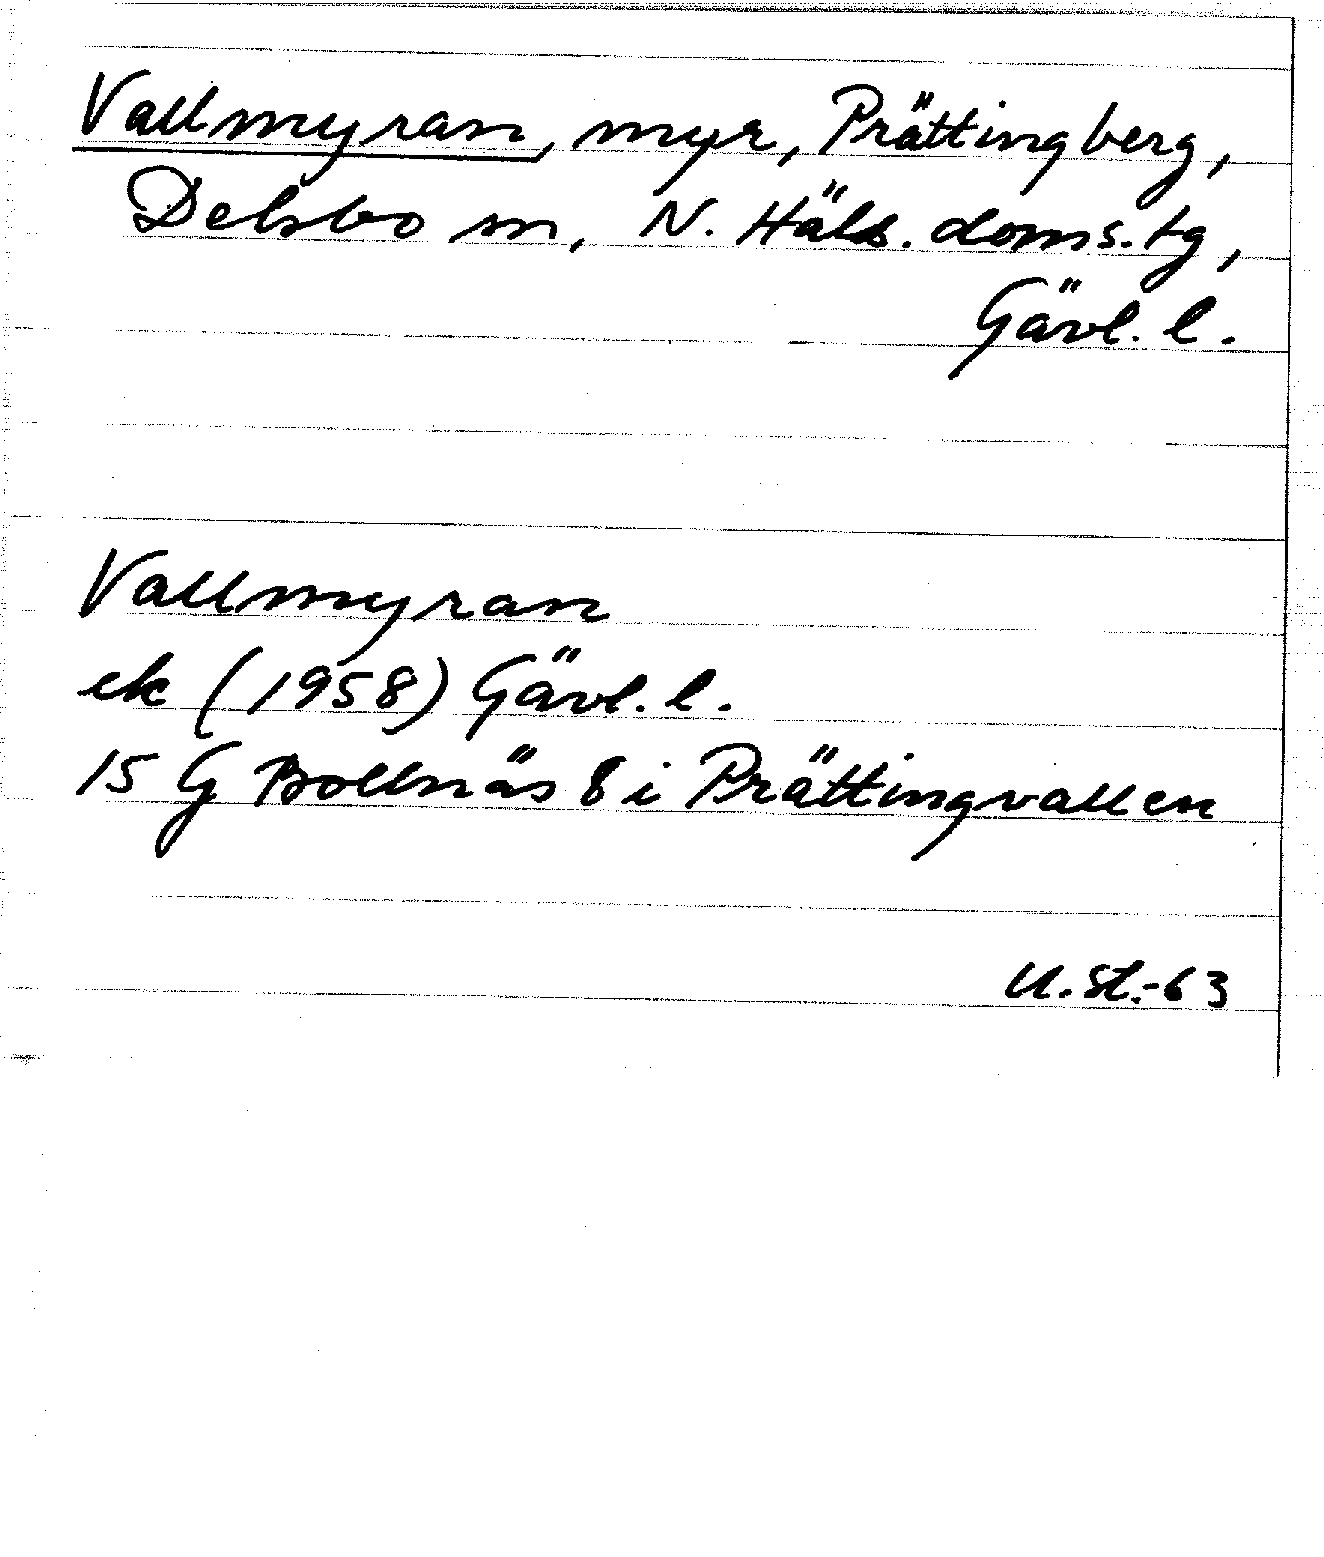 Vallmyran, myr, Prättingberg,
Delsbo sn, N. Häls. doms. tg,
Gävl. l.
Vallmyran
ek (1958) Gävl. l.
15 G Bollnäs 8 i Prättingvallen
U. St. -63